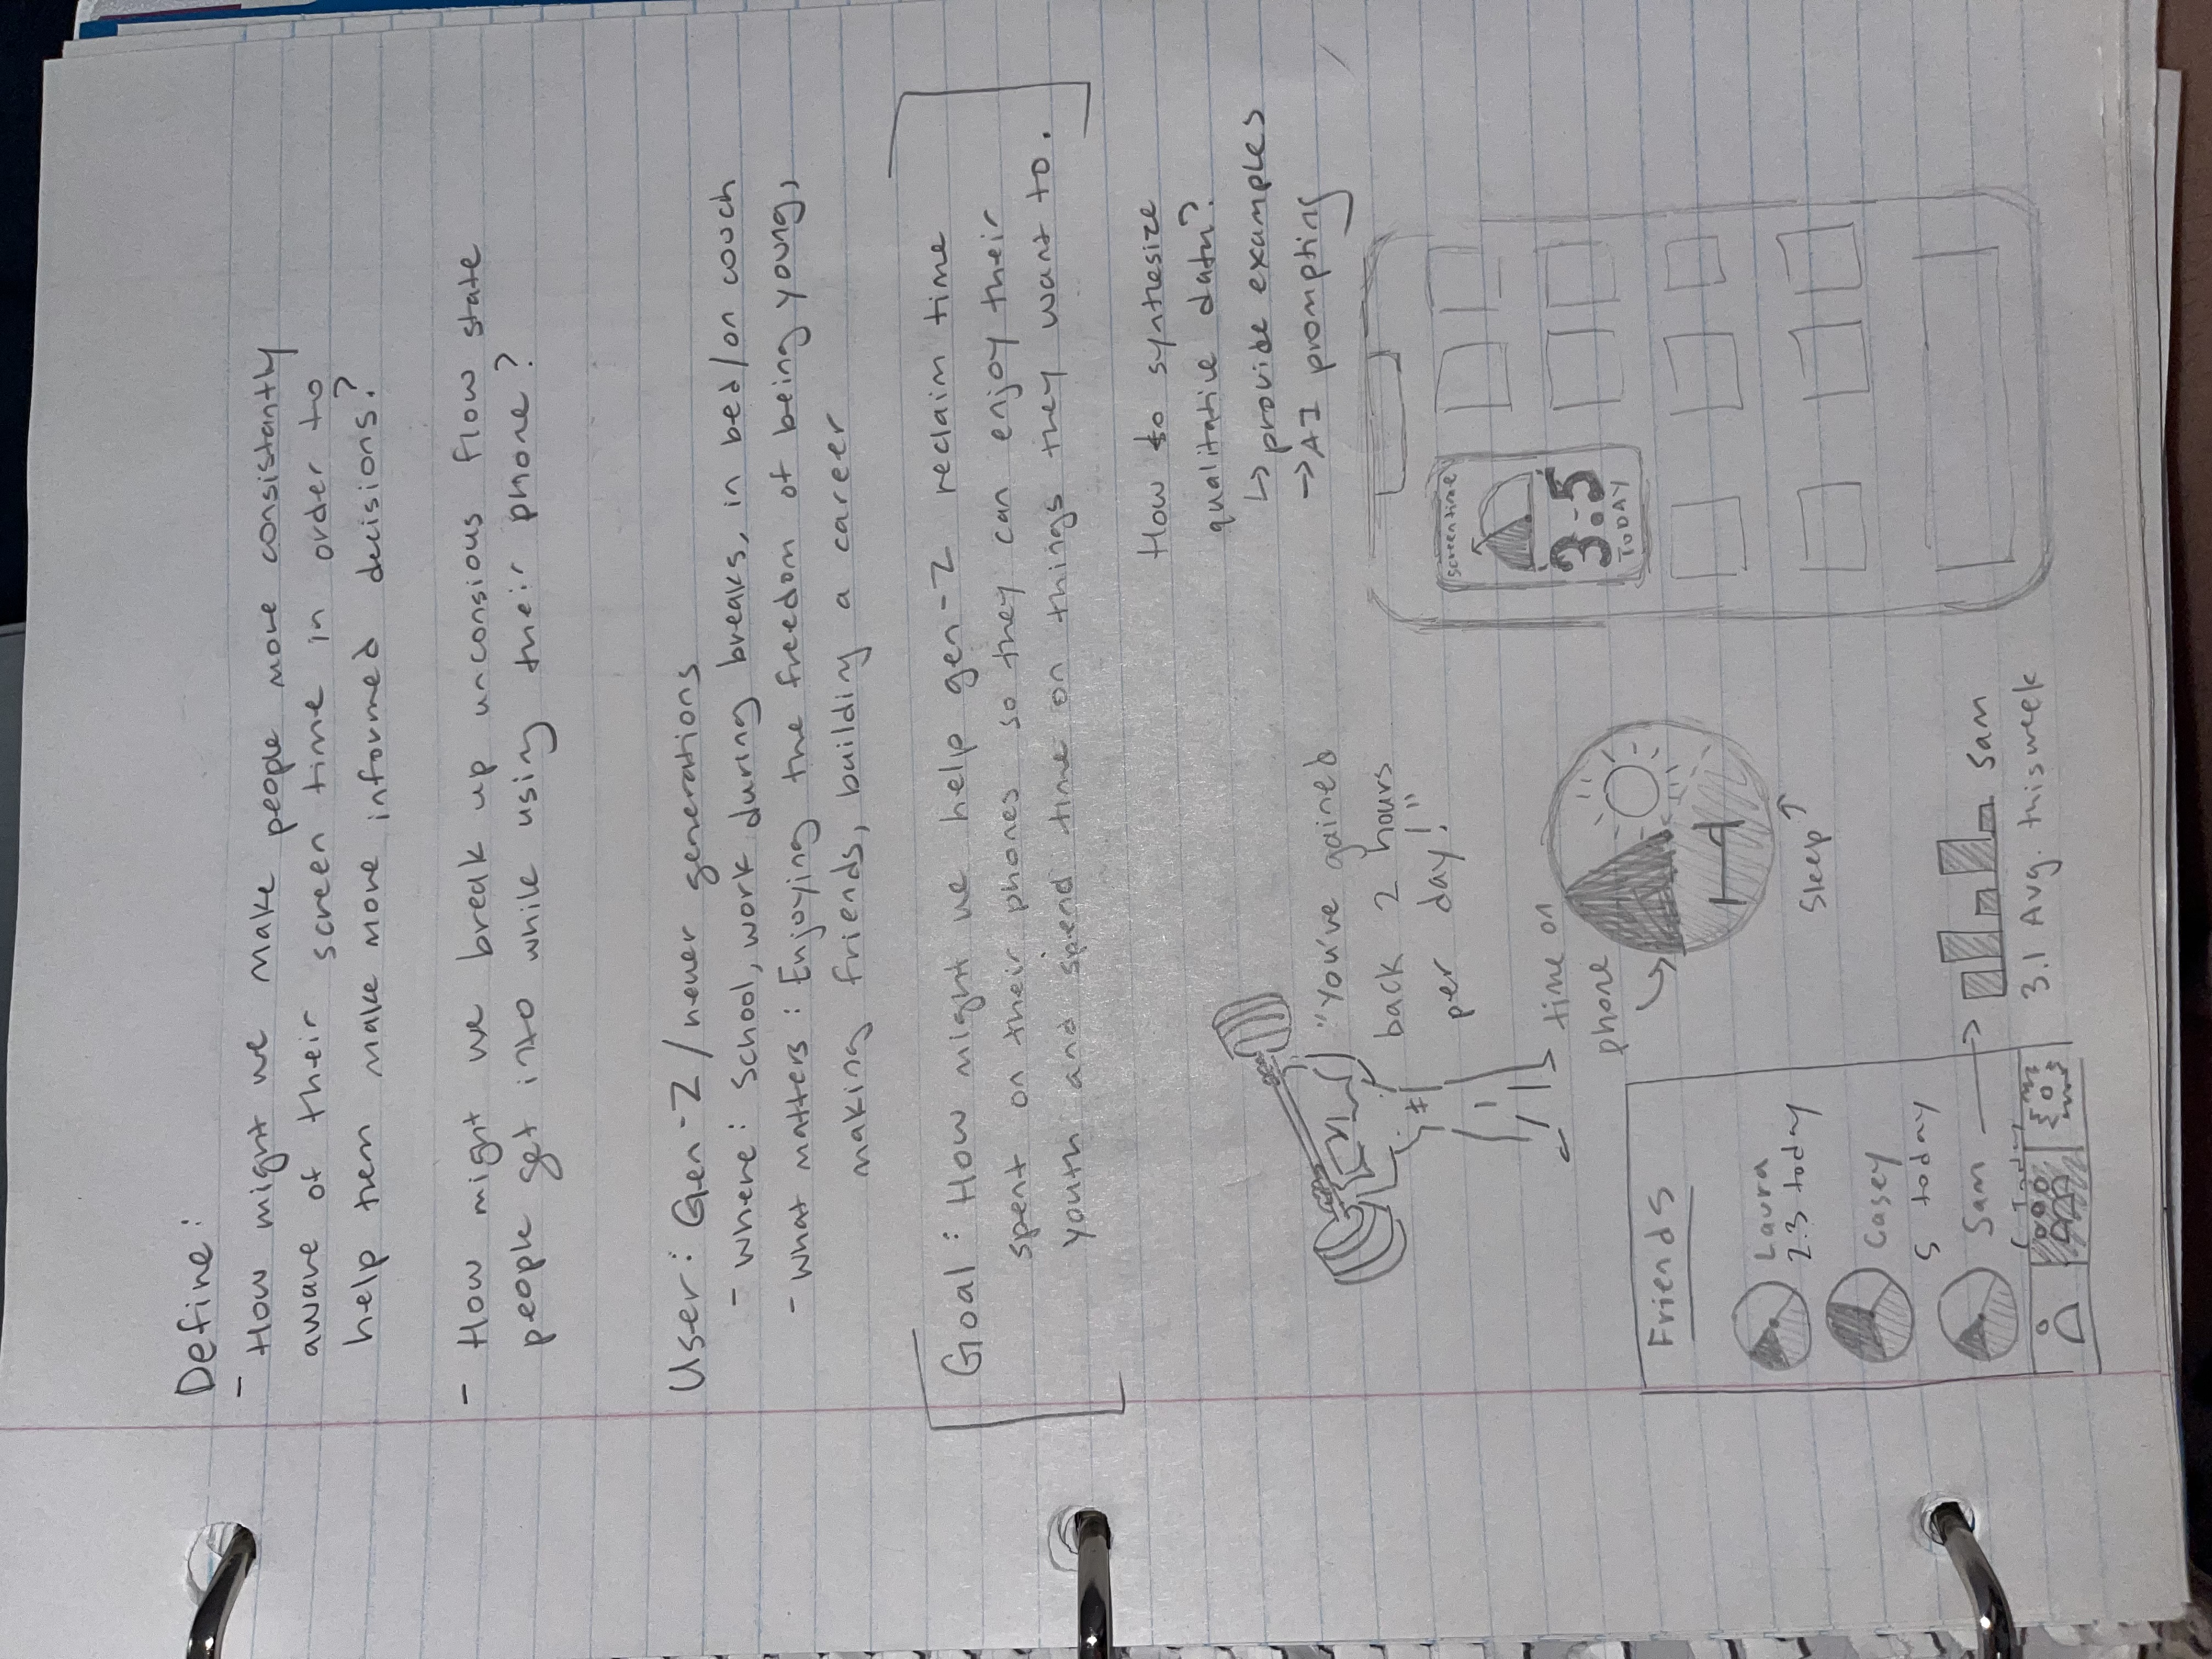 Define:
- How might we make people more consistantly
aware of their screen time in order to
help them make more informed decisions?
- How might we break up unconsious flow state
people get into while using their phone?
User: Gen-Z/newer generations
- where: School, work during breaks, in bed/on couch
- what matters: Enjoying the freedom of being young,
making friends, building a career
Goal: How might we help gen-Z reclaim time
spent on their phones so they can enjoy their
youth and spend time on things they want to.
How to synthesize
qualitative data?
↳ provide examples
→ AI prompting
"You've gained
back 2 hours
per day!"
time on
phone
Sleep
screentime
3.5
TODAY
Friends
Laura
2.3 today
Casey
5 today
Sam
Today
Sam
3.1 Avg. this week